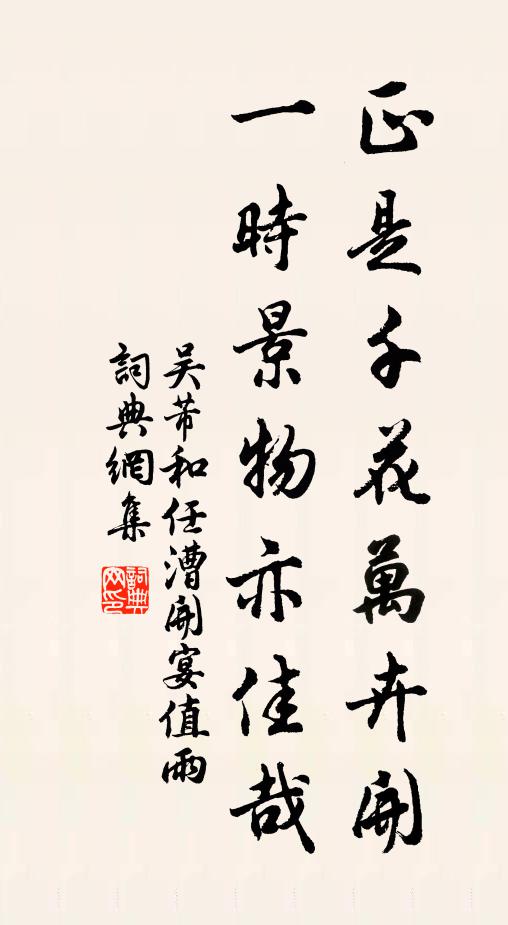 正是千花萬卉開
一時景物亦佳哉
吴芾和任漕開宴值雨
詞典網集
詞典網印